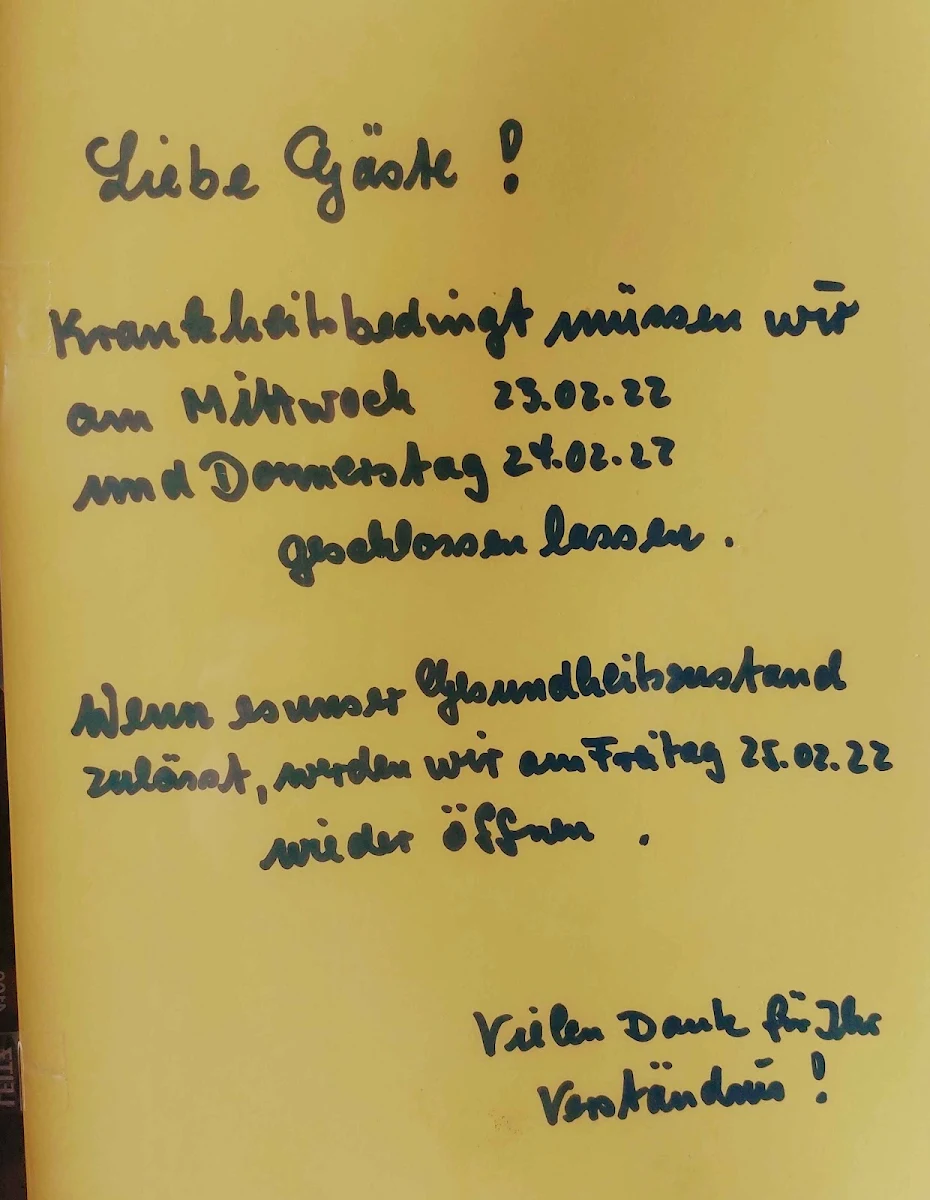 Liebe Gäste !
Krankheitsbedingt müssen wir
am Mittwoch 23.02.22
und Donnerstag 24.02.22
geschlossen lassen .
Wenn es unser Gesundheitszustand
zulässt, werden wir am Freitag 25.02.22
wieder öffnen .
Vielen Dank für Ihr
Verständnis !